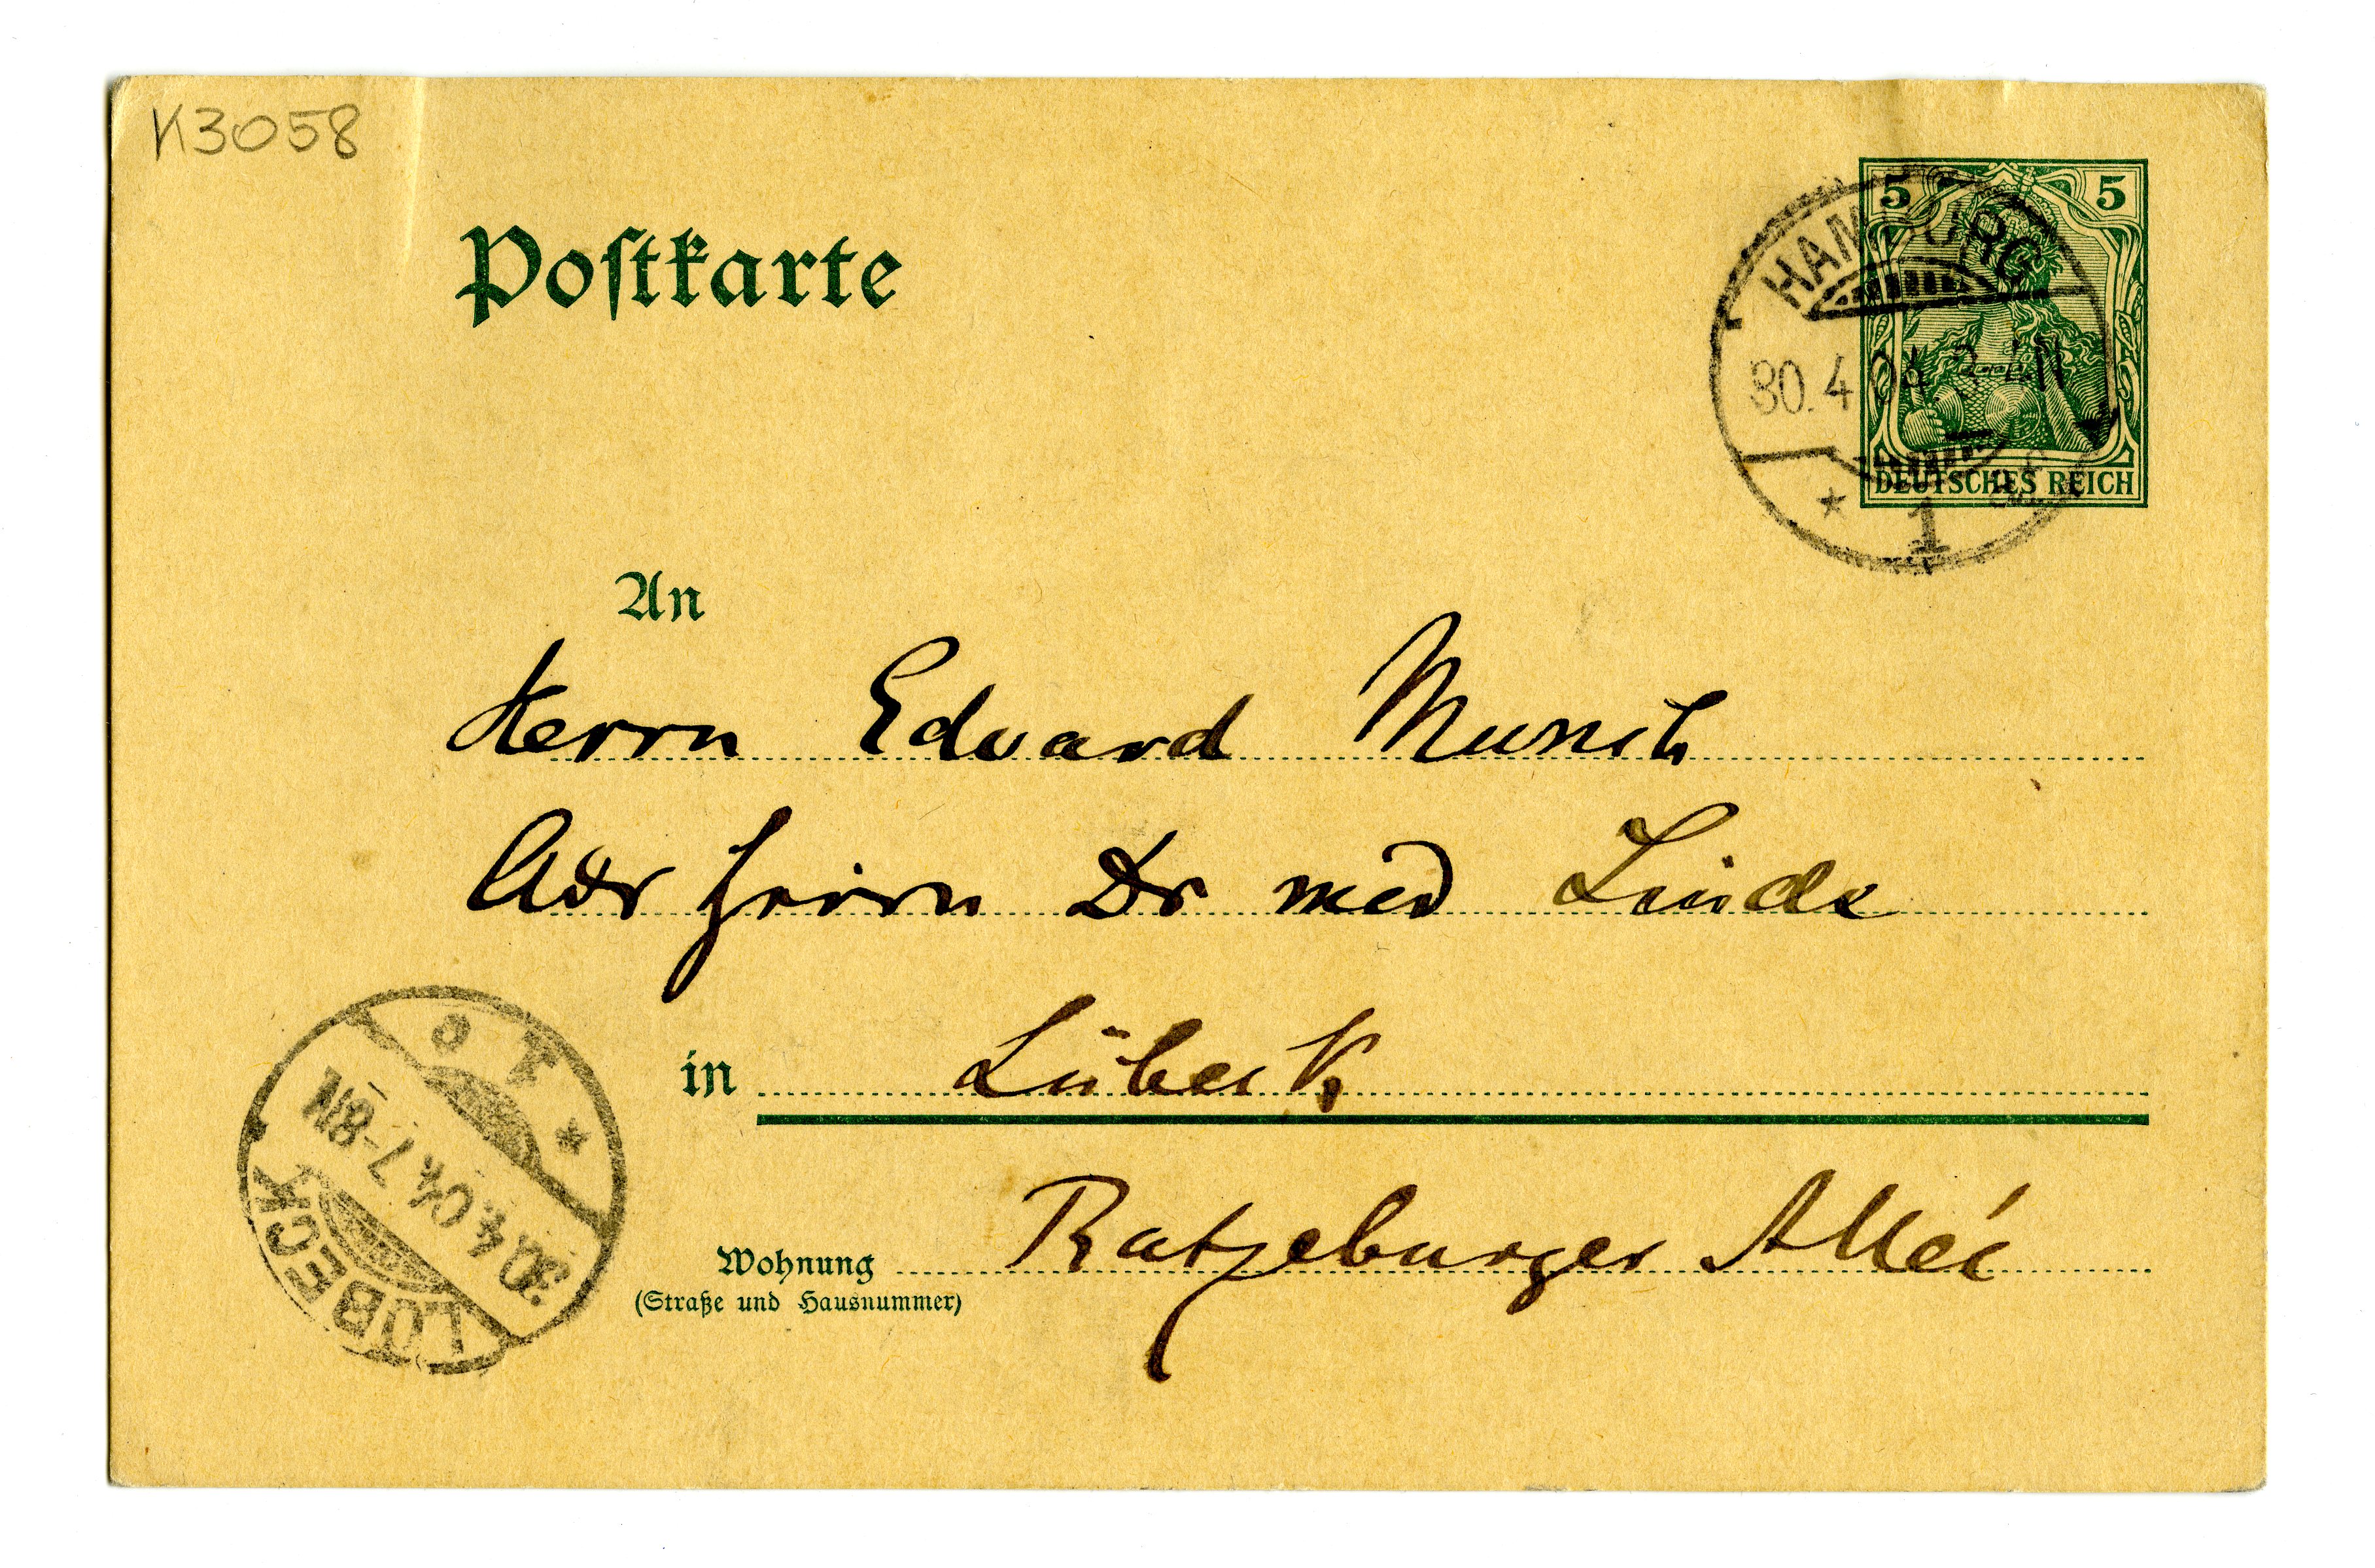 K3058
Postkarte
5 5
HAMBURG
30.4.04.
DEUTSCHES REICH
* 1
An
Herrn Eduard Munch
Adr Herrn Dr med Linde
in Lübeck
Wohnung Ratzeburger Alleé
(Straße und Hausnummer)
LÜBECK
30.4.04. 7-8N
* 1 c